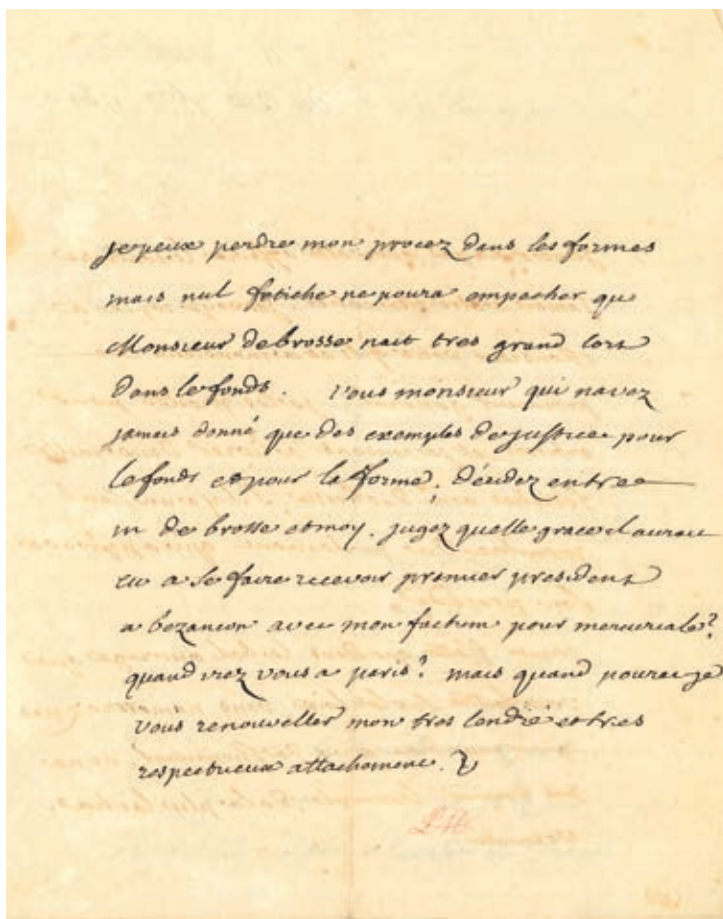 je peux perdre mon procez dans les formes
mais nul fetiche ne poura empecher que
Monsieur de brosse nait tres grand tort
dans le fonds. vous monsieur qui navez
jamais donné que des exemples de justice pour
le fonds et pour la forme, décidez entre
m de brosse et moy. jugez quelle grace il aurait
eu a se faire recevoir premier president
a bezancon avec mon factum pour mercuriale?
quand irez vous a paris? mais quand pourai je
vous renouveller mon tres tendre et tres
respectueux attachement. V